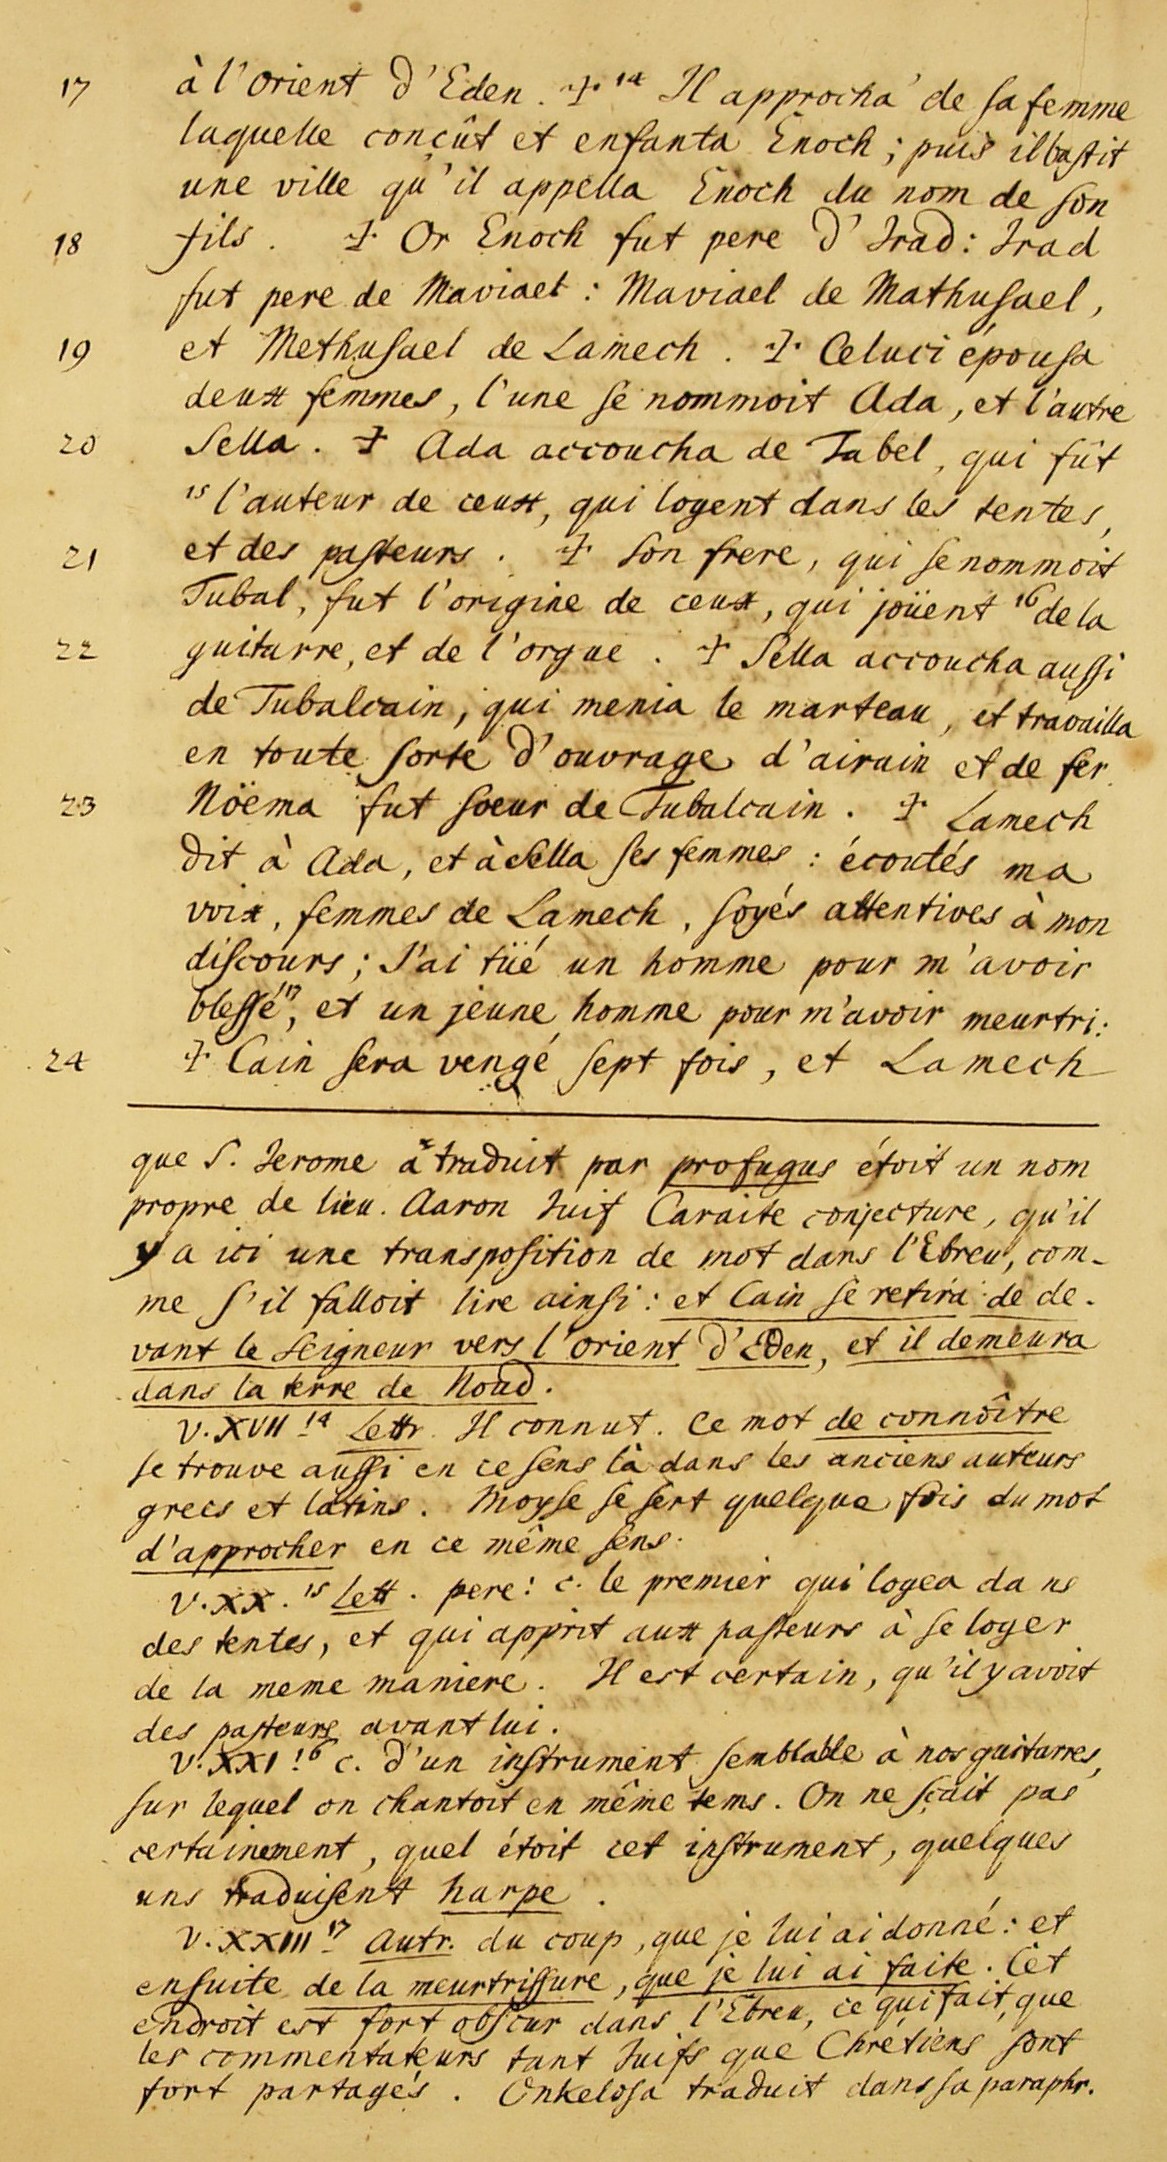 17 à l'orient d'Eden. ✝ 14 Il approcha de sa femme
laquelle conçût et enfanta Enoch; puis il bastit
une ville qu'il appella Enoch du nom de son
18 fils. ✝ Or Enoch fut pere d'Irad: Irad
fut pere de Maviael: Maviael de Mathusael,
19 et Methusael de Lamech. ✝ Celuci épousa
deux femmes, l'une se nommoit Ada, et l'autre
20 Sella. ✝ Ada accoucha de Jabel, qui fût
15 l'auteur de ceux, qui logent dans les tentes,
21 et des pasteurs. ✝ Son frere, qui se nommoit
Tubal, fut l'origine de ceux, qui joüent 16 de la
22 guitarre, et de l'orgue. ✝ Sella accoucha aussi
de Tubalcain, qui menia le marteau, et travailla
en toute sorte d'ouvrage d'airain et de fer.
23 Nöema fut soeur de Tubalcain. ✝ Lamech
dit à Ada, et à Sella ses femmes: écoutés ma
voix, femmes de Lamech, soyés attentives à mon
discours; J'ai tüé un homme pour m'avoir
blessé 17, et un jeune homme pour m'avoir meurtri:
24 ✝ Cain sera vengé sept fois, et Lamech
que S. Jerome a traduit par profugus étoit un nom
propre de lieu. Aaron Juif Caraite conjecture, qu'il
y a ici une transposition de mot dans l'Ebreu, com-
me s'il falloit lire ainsi: et Cain se retira de de-
vant le Seigneur vers l'orient d'Eden, et il demeura
dans la terre de Noud.
V. XVII 14 Lettr. Il connut. Ce mot de connoître
se trouve aussi en ce sens là dans les anciens auteurs
grecs et latins. Moyse se sert quelque fois du mot
d'approcher en ce même sens.
V. XX. 15 Lett. pere: c. le premier qui logea dans
des tentes, et qui apprit aux pasteurs à se loger
de la meme maniere. Il est certain, qu'il y avoit
des pasteurs avant lui.
V. XXI 16 c. d'un instrument semblable à nos guitarres,
sur lequel on chantoit en même tems. On ne sçait pas
certainement, quel étoit cet instrument, quelques
uns traduisent harpe.
V. XXIII 17 Autr. du coup, que je lui ai donné: et
ensuite de la meurtrissure, que je lui ai faite. Cet
endroit est fort obscur dans l'Ebreu, ce qui fait, que
les commentateurs tant Juifs que Chrétiens sont
fort partagés. Onkelos a traduit dans sa paraphr.